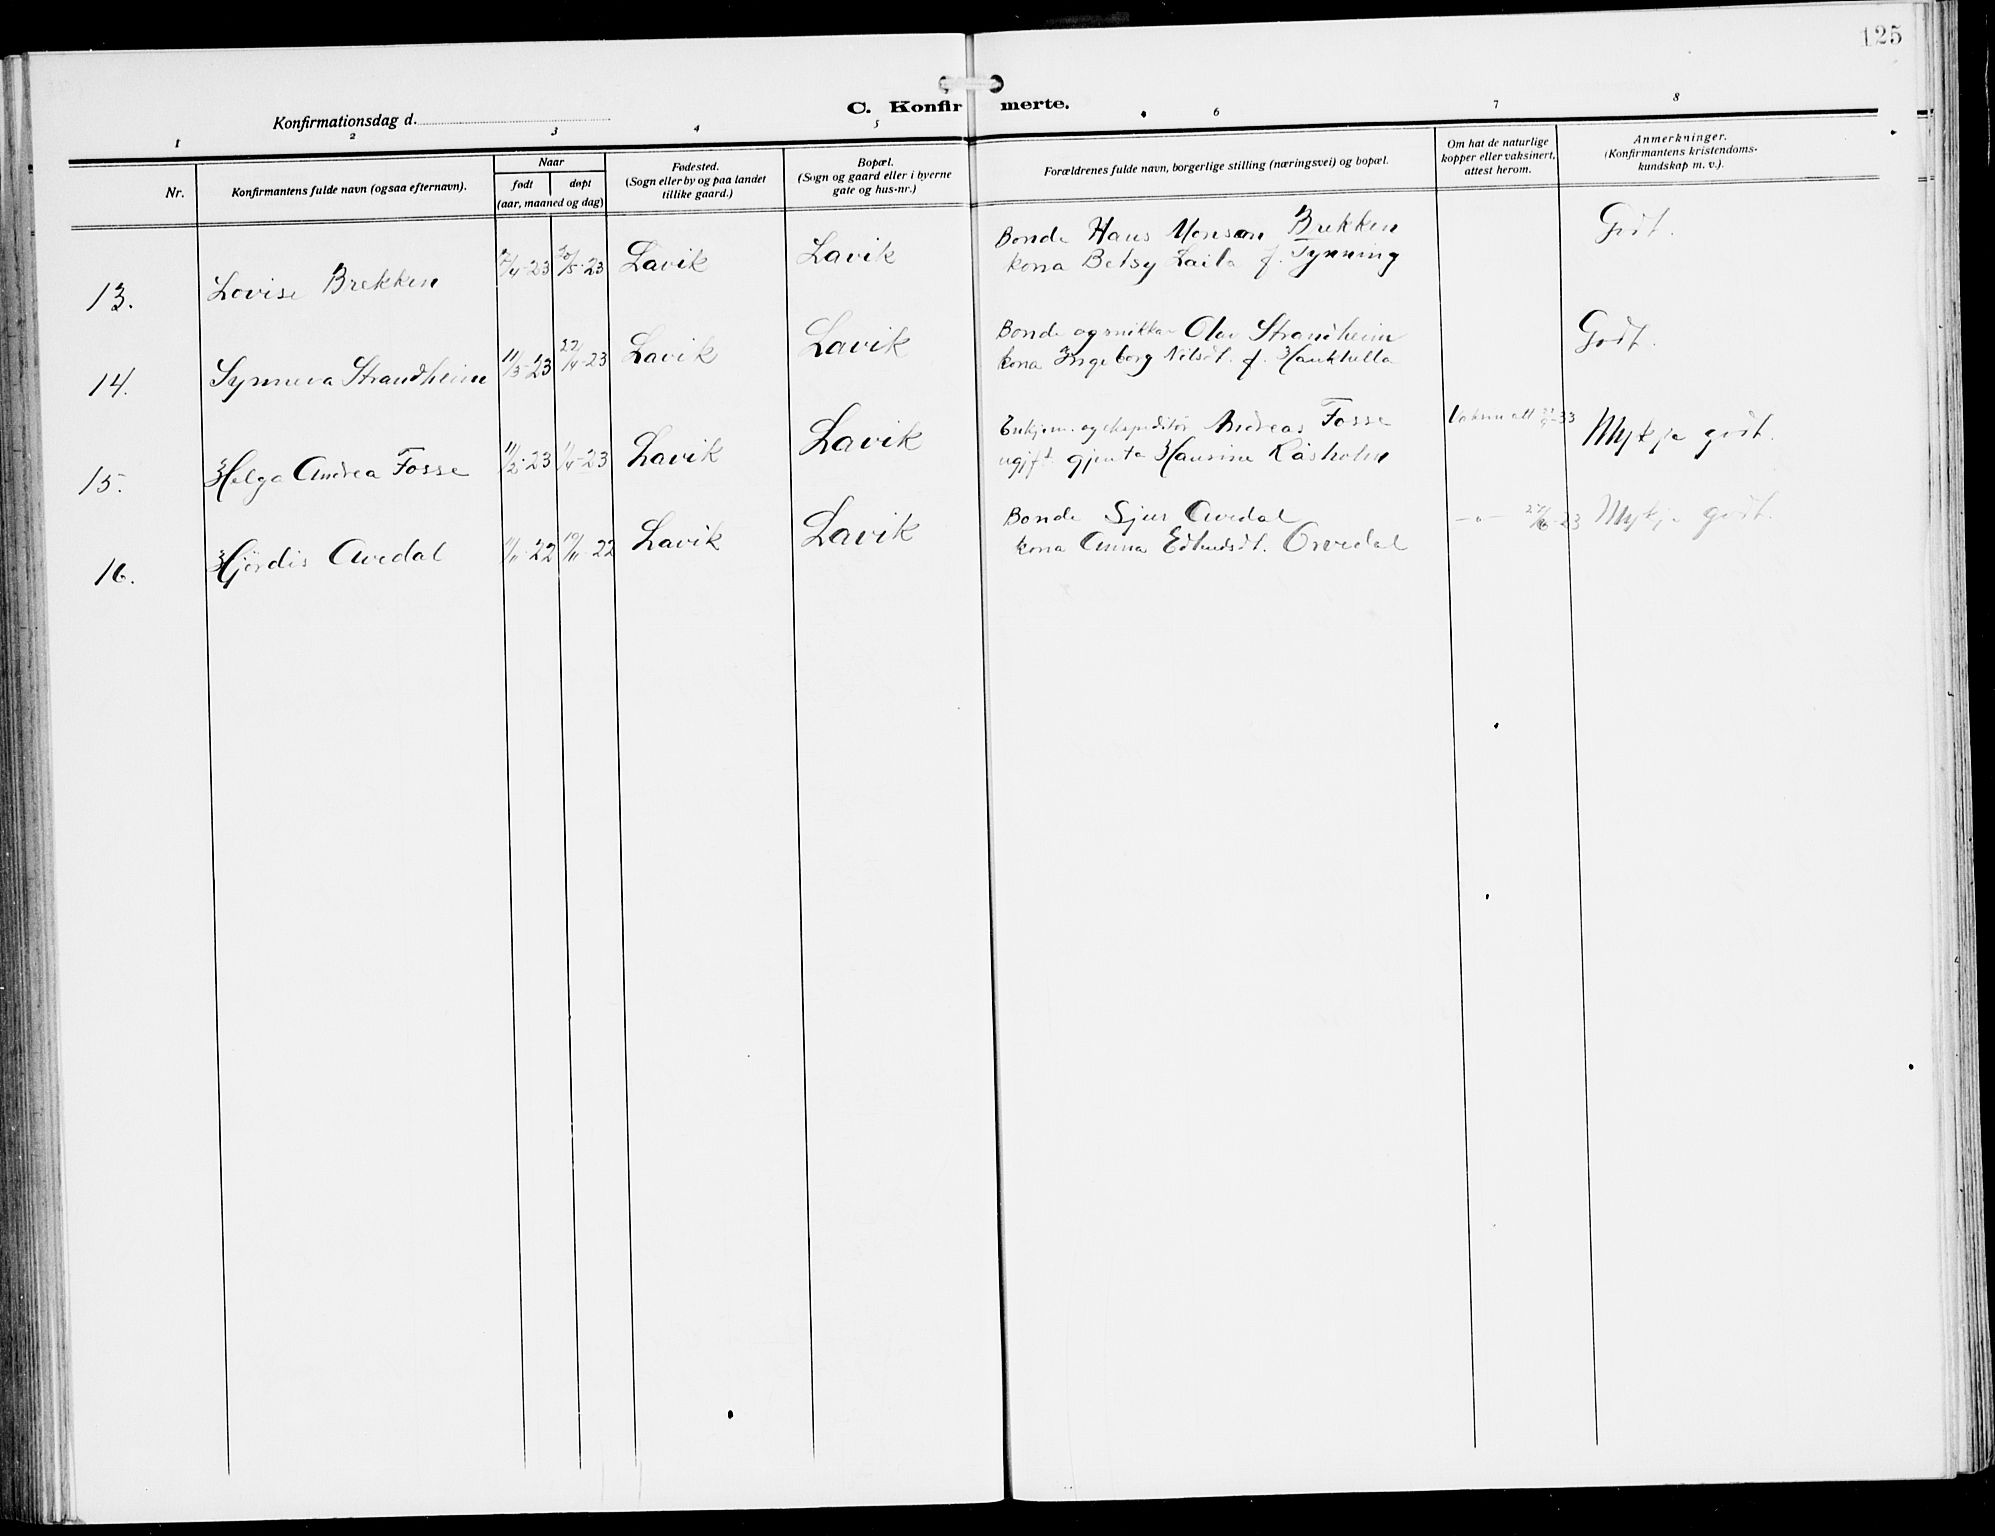 125
C. Konfirmerte.
Konfirmationsdag d.
1 2 3 4 5 6 7 8
Nr.
Konfirmantens fulde navn (ogsaa efternavn).
Naar
født døpt
(aar, maaned og dag)
Fødested.
(Sogn eller by og paa landet
tillike gaard.)
Bopæl.
(Sogn og gaard eller i byerne
gate og hus-nr.)
Forældrenes fulde navn, borgerlige stilling (næringsvei) og bopæl.
Om hat de naturlige
kopper eller vaksinert,
attest herom.
Anmerkninger.
(Konfirmantens kristendoms-
kundskap m. v.).
13. Lovise Brekken /4-23 20/5-23 Lavik Lavik
Bonde Hans Monson Brekken
kona Betsy Laila f. Tynning
Godt.
14. Synneva Strandheim 11/3-23 22/4-23 Lavik Lavik
Bonde og snikkar Olav Strandheim
kona Ingeborg Nilsdt. f.
Godt.
15. Helga Andrea Fosse 11/2-23 1/4-23 Lavik Lavik
Enkjem. og ekspeditør Andreas Fosse
ugift gjenta Hansine Råsholm
Mykje godt.
16. Hjördis Avedal 11-22 19/11-22 Lavik Lavik
Bonde Sjur Avedal
kona Anna
-"- Mykje godt.